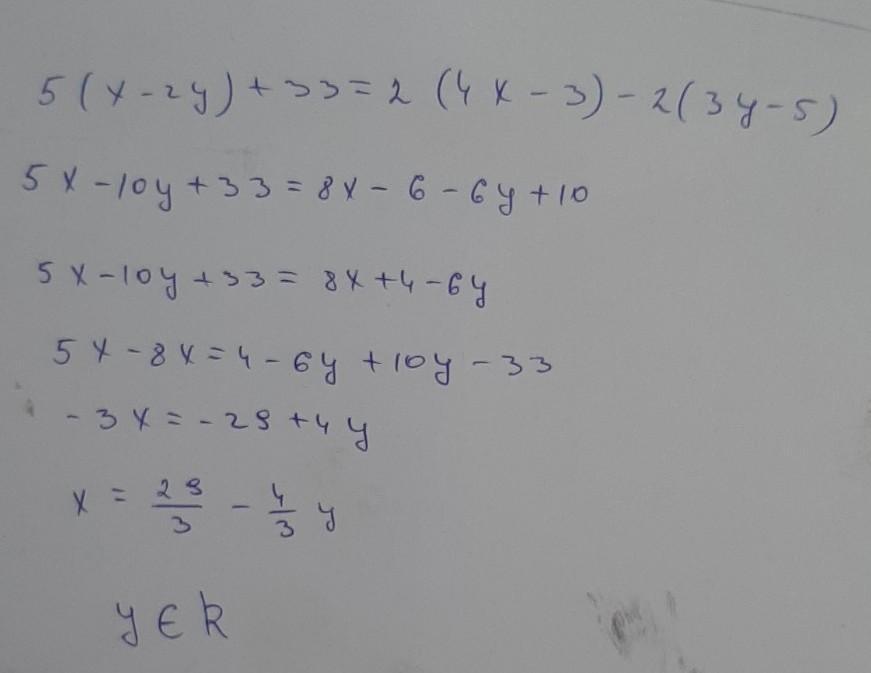 5(x-2y)+33=2(4x-3)-2(3y-5)
5x-10y+33=8x-6-6y+10
5x-10y+33=8x+4-6y
5x-8x=4-6y+10y-33
-3x=-29+4y
x = 29/3 - 4/3 y
y ∈ R